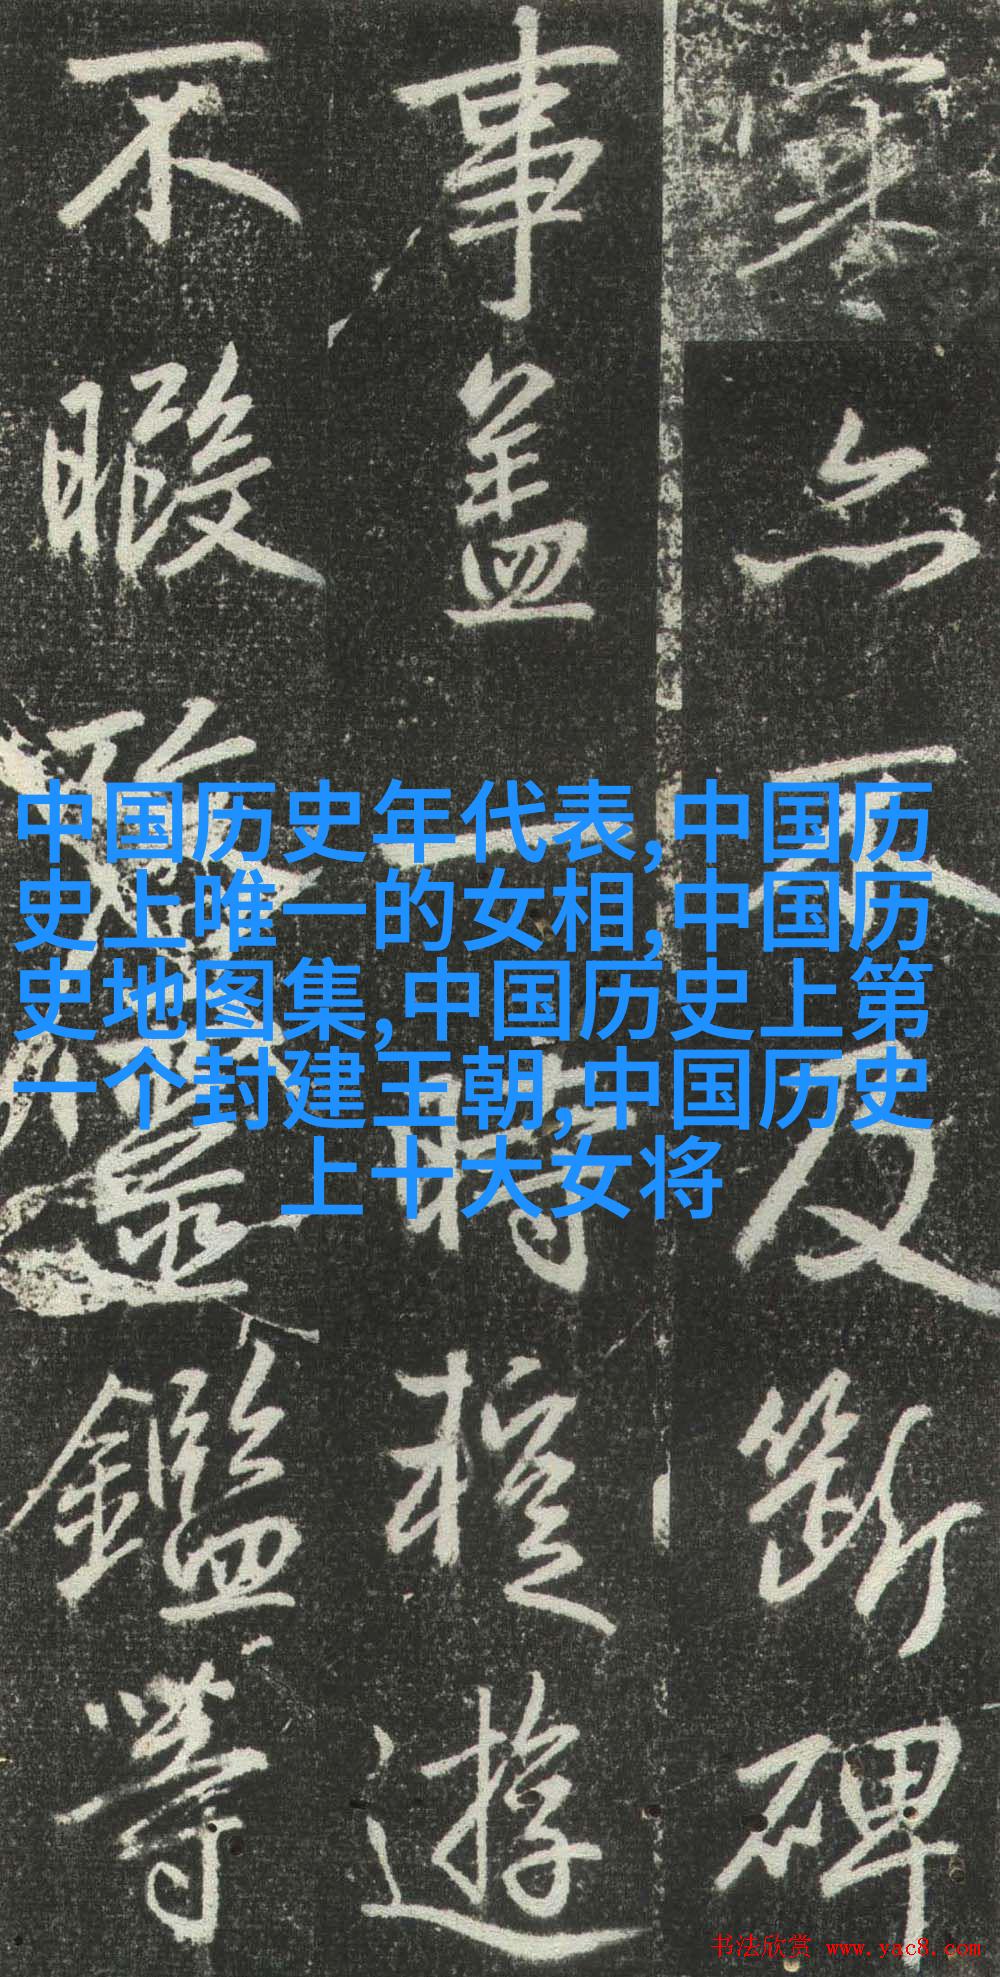 中国历史年代表,中国历
史上唯一的女相,中国历
史地图集,中国历史上第
一个封建王朝,中国历史
上十大女将
亦不及斷碑
事盖一時遊
不暇鑑等
书法欣赏 www.yac8.com